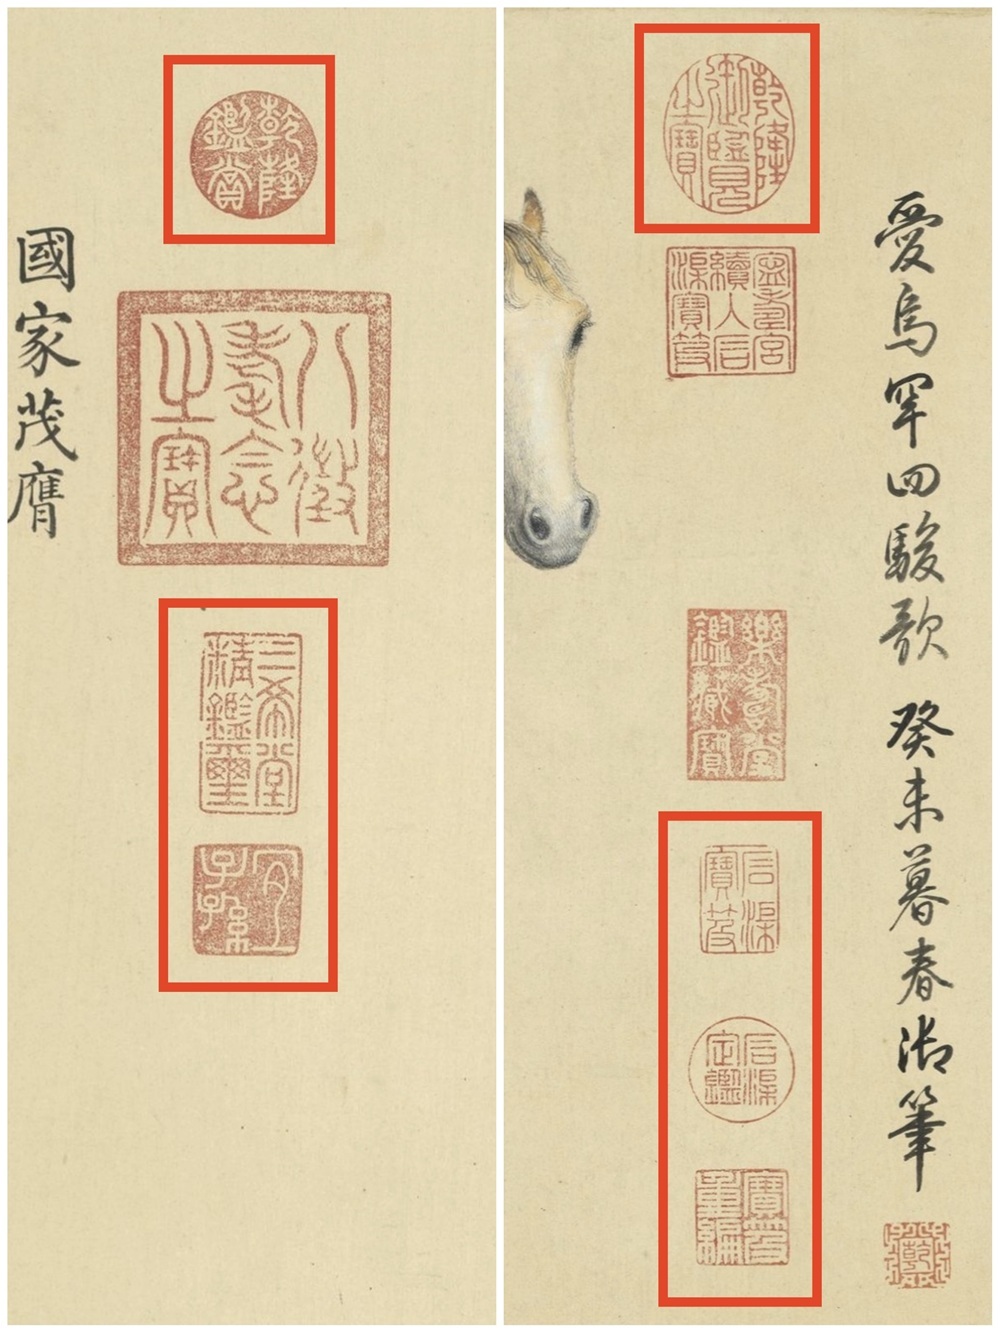 乾隆鑑賞
國家茂膺
八徵耄念之寶
三希堂精鑑璽
宜子孫
乾隆御覽之寶
寧壽宮續入石渠寶笈
樂壽堂鑑藏寶
石渠寶笈
石渠定鑑
寶笈重編
愛烏罕四駿歌 癸未暮春御筆